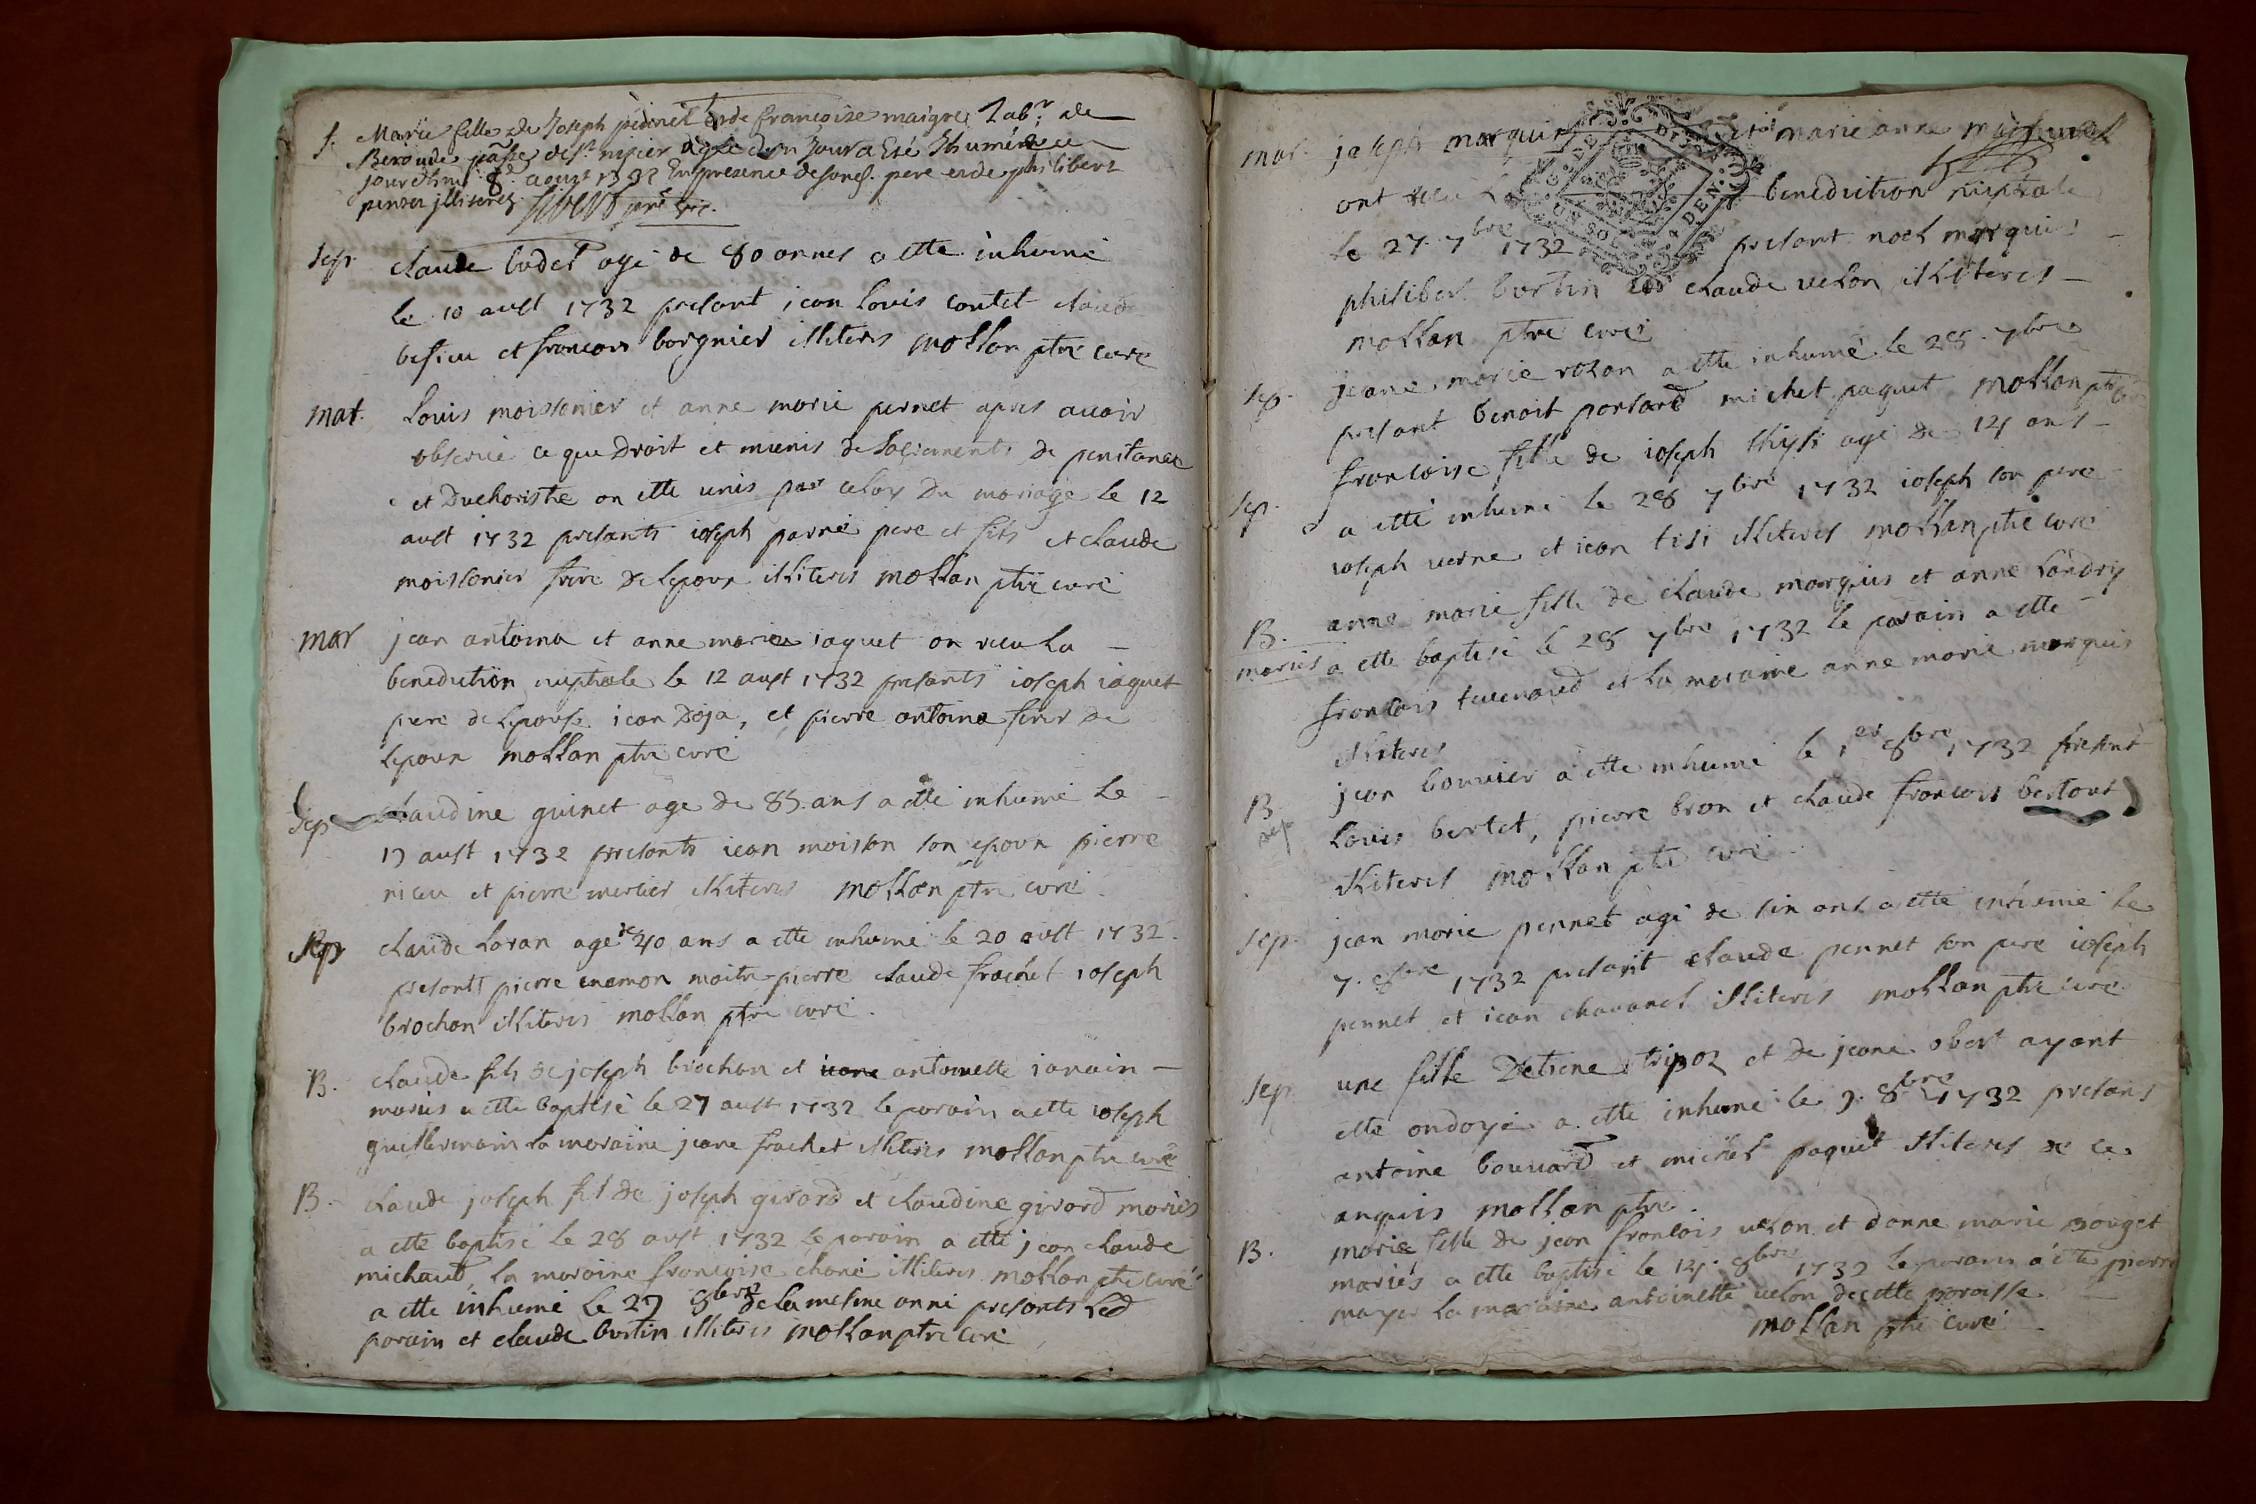 S. Marie fille de Joseph pedenel et de francoise maigre Labr. de
Beroude paße de St. nisier agée d'un Jour a Esté Jhumée ce
jourdhui 8e. aoust 1732 En presence de Jonc. pere et de philibert
penson jlliterez
Sep claude budet age de 80 annes a ette inhume
le 10 aust 1732 presant jean Louis contet claude
besieu et francois borgnier illiteres mollan ptre cure
mar. Louis moissonier et anne marie pernet apres avoir
observé ce que droit et munis de sacrements de penitance
et Ducharistie on ette unis par celoy du mariage le 12
aust 1732 presants ioseph parné pere et fils et claude
moissonier frere de lepoux illiteres mollan ptre curé
mar jean antoina et anne marie iaquet on receu la –
benediction nuptiale le 12 aust 1732 presants ioseph iaquet
pere de lepouse. jean Doja, et pierre antoina frere de
lepoux mollan ptre curé
Sep claudine guinet age de 85 ans a ette inhumé le –
17 aust 1732 presants jean moisson son epoux pierre
nieu et pierre mercier illiteres mollan ptre curé.
Sep claude Loran age de 40 ans a ette inhumé le 20 aust 1732.
presants pierre enemon maitre pierre claude frachet ioseph
brochon illiteres mollan ptre curé.
B. claude fils de joseph brochon et jeane antoinette janain –
mariés a ette baptisé le 27 aust 1732 le parain a ette ioseph
guillermain la maraine jeane frachet illiteres mollan ptre curé
B. claude joseph fil de joseph girard et claudine girard mariés
a ette baptisé le 28 aust 1732 le parain a ette jean claude
michaud, la maraine francoise chané illiteres mollan ptre curé
a ette inhumé le 27 8bre de la mesme anné presants led
parain et claude bertin illiteres mollan ptre curé
mar. joseph marquis et marie anne
ont receu La benediction nuptiale
le 27. 7bre 1732 presant noel marquis –
philibert bertin et claude velon illiteres –
mollan ptre curé
Sep. jeane marie rolan a ette inhumé le 28. 7bre
presant benoit ponsard michel paquet mollan ptre
Sep. francoise fille de ioseph thisi age de 14 ans –
a ette inhumé le 28 7bre 1732 ioseph son pere
ioseph verne et jean tisi illiteres mollan ptre curé
B. anne marie fille de claude marquis et anne Landry
mariés a ette baptisé le 28 7bre 1732 le parain a ette
francois tevenard et la maraine anne marie marquis
illiteres
B jean bouvier a ette inhumé le 1er 8bre 1732 presant
sep Louis bertet, pierre bron et claude francois bertout
illiteres mollan ptre curé
Sep. jean marie pennet agé de sin ans a ette inhumé le
7. 8bre 1732 presant claude pennet son pere ioseph
pennet et jean chavanel illiteres mollan ptre curé
Sep. une fille Detiene tripoz et de jeane obert ayant
ette ondoyé a ette inhumé le 9. 8bre 1732 presans
antoine bouvard et michel paquet illiteres de ce
anquis mollan ptre.
B. marie fille de jean francois velon et danne marie mouget
mariés a ette baptisé le 14. 8bre 1732 le parain a ette pierre
mayer la maraine antoinette velon de cette paroisse
mollan ptre curé